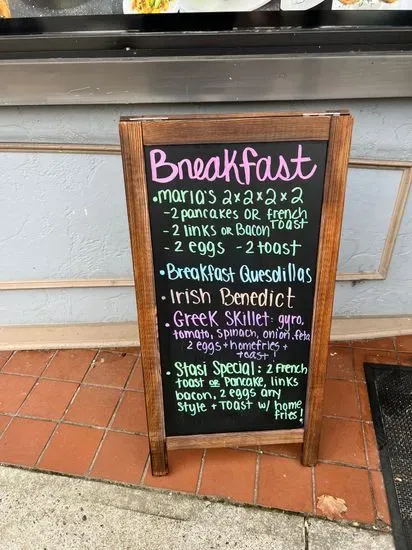 Breakfast
• Maria's 2x2x2x2
- 2 pancakes OR french toast
- 2 links OR Bacon
- 2 eggs - 2 toast
• Breakfast Quesdillas
• Irish Benedict
• Greek Skillet: gyro,
tomato, spinach, onion, feta
2 eggs + homefries +
toast!
• Stasi Special: 2 French
toast or pancake, links
bacon, 2 eggs any
style + toast w/ home
fries!